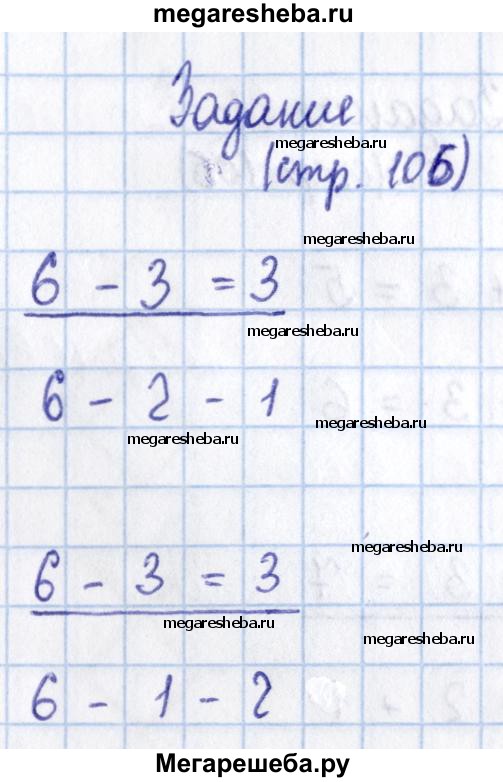 megaresheba.ru
Задание
megaresheba.ru
(стр. 106)
megaresheba.ru
6 - 3 = 3
megaresheba.ru
6 - 2 - 1
megaresheba.ru
megaresheba.ru
megaresheba.ru
6 - 3 = 3
megaresheba.ru
megaresheba.ru
6 - 1 - 2
Мегарешеба.ру